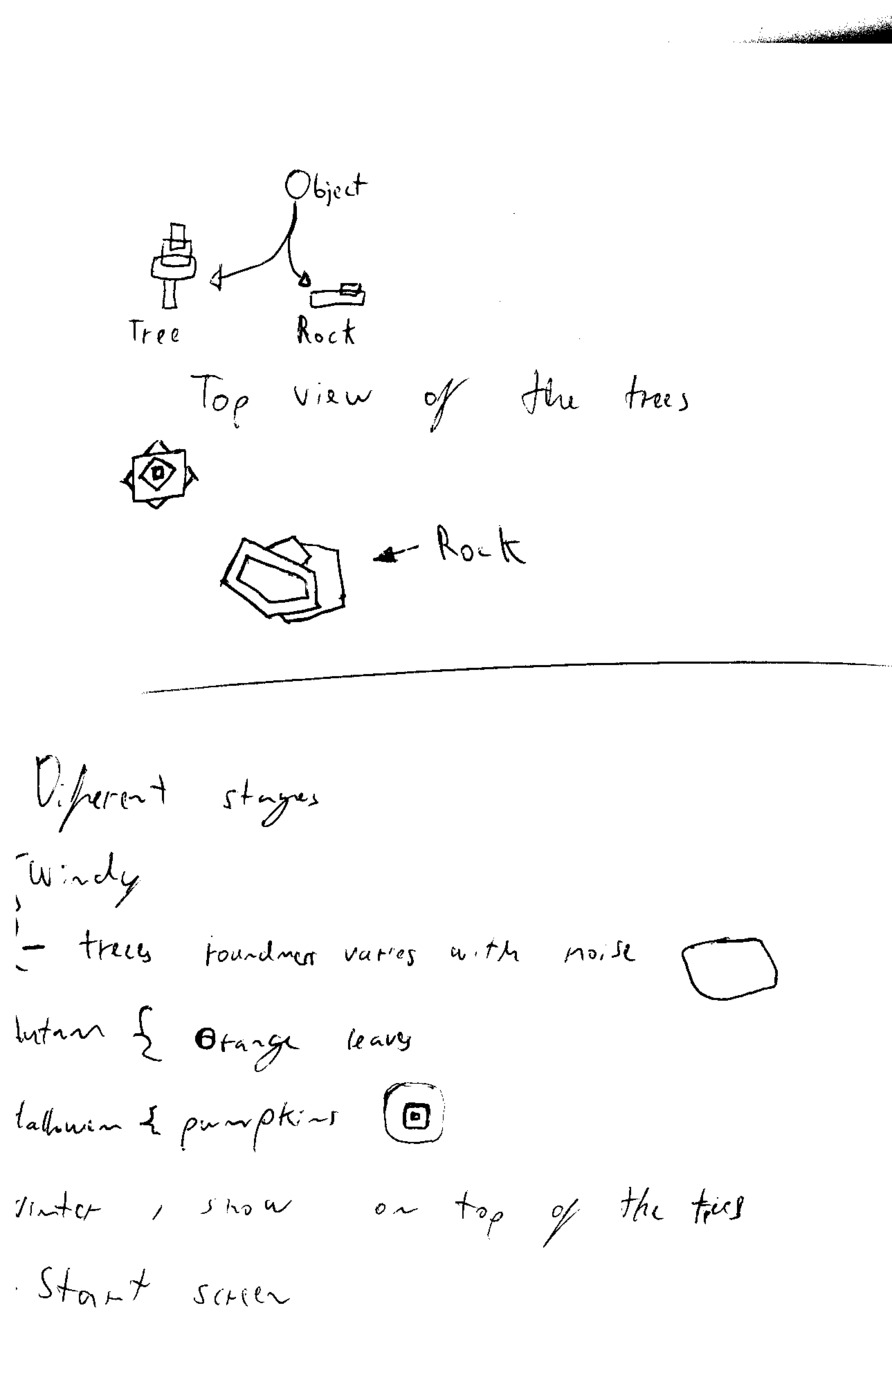 Object
Tree Rock
Top view of the trees
Rock
Different stages
Windy
- trees roundness varies with noise
Orange leaves
pumpkins
, snow on top of the trees
Start screen